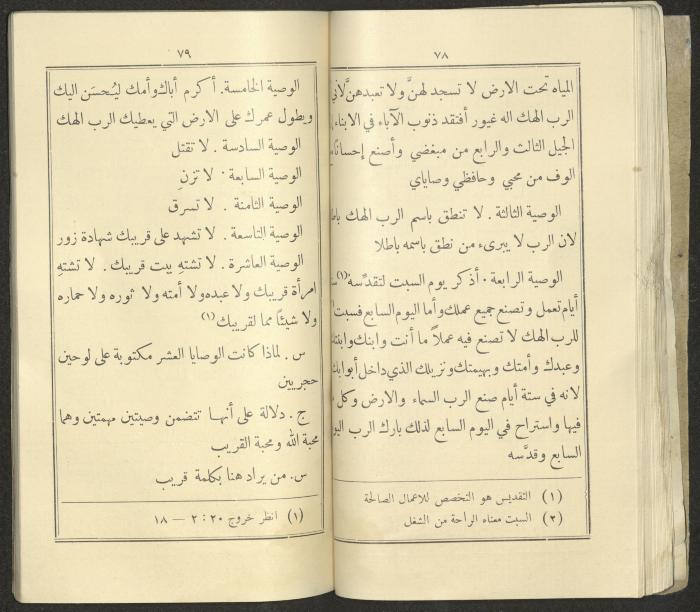 ٧٨
المياه تحت الارض لا تسجد لهنَّ ولا تعبدهنَّ لاني
الرب الهك اله غيور أفتقد ذنوب الآباء في الابناء
الجيل الثالث والرابع من مبغضي وأصنع إحسانًا
الوف من محبي وحافظي وصاياي
الوصية الثالثة . لا تنطق باسم الرب الهك
لان الرب لا يبرىء من نطق باسمه باطلا
الوصية الرابعة . أذكر يوم السبت لتقدِّسه (١)
أيام تعمل وتصنع جميع عملك وأما اليوم السابع فسبت
للرب الهك لا تصنع فيه عملاً ما أنت وابنك وابنتك
وعبدك وأمتك وبهيمتك ونزيلك الذي داخل أبوابك
لانه في ستة أيام صنع الرب السماء والارض وكل
فيها واستراح في اليوم السابع لذلك بارك الرب
السابع وقدَّسه
(١) التقديس هو التخصص للاعمال الصالحة
(٢) السبت معناه الراحة من الشغل
٧٩
الوصية الخامسة . أكرم أباك وأمك ليُحسَن اليك
ويطول عمرك على الارض التي يعطيك الرب الهك
الوصية السادسة . لا تقتل
الوصية السابعة . لا تزنِ
الوصية الثامنة . لا تسرق
الوصية التاسعة . لا تشهد على قريبك شهادة زور
الوصية العاشرة . لا تشتهِ بيت قريبك . لا تشتهِ
امرأة قريبك ولا عبده ولا أمته ولا ثوره ولا حماره
ولا شيئًا مما لقريبك (١)
س . لماذا كانت الوصايا العشر مكتوبة على لوحين
حجريين
ج . دلالة على أنها تتضمن وصيتين مهمتين وهما
محبة الله ومحبة القريب
س . من يراد هنا بكلمة قريب
(١) انظر خروج ٢٠ : ٢ — ١٨